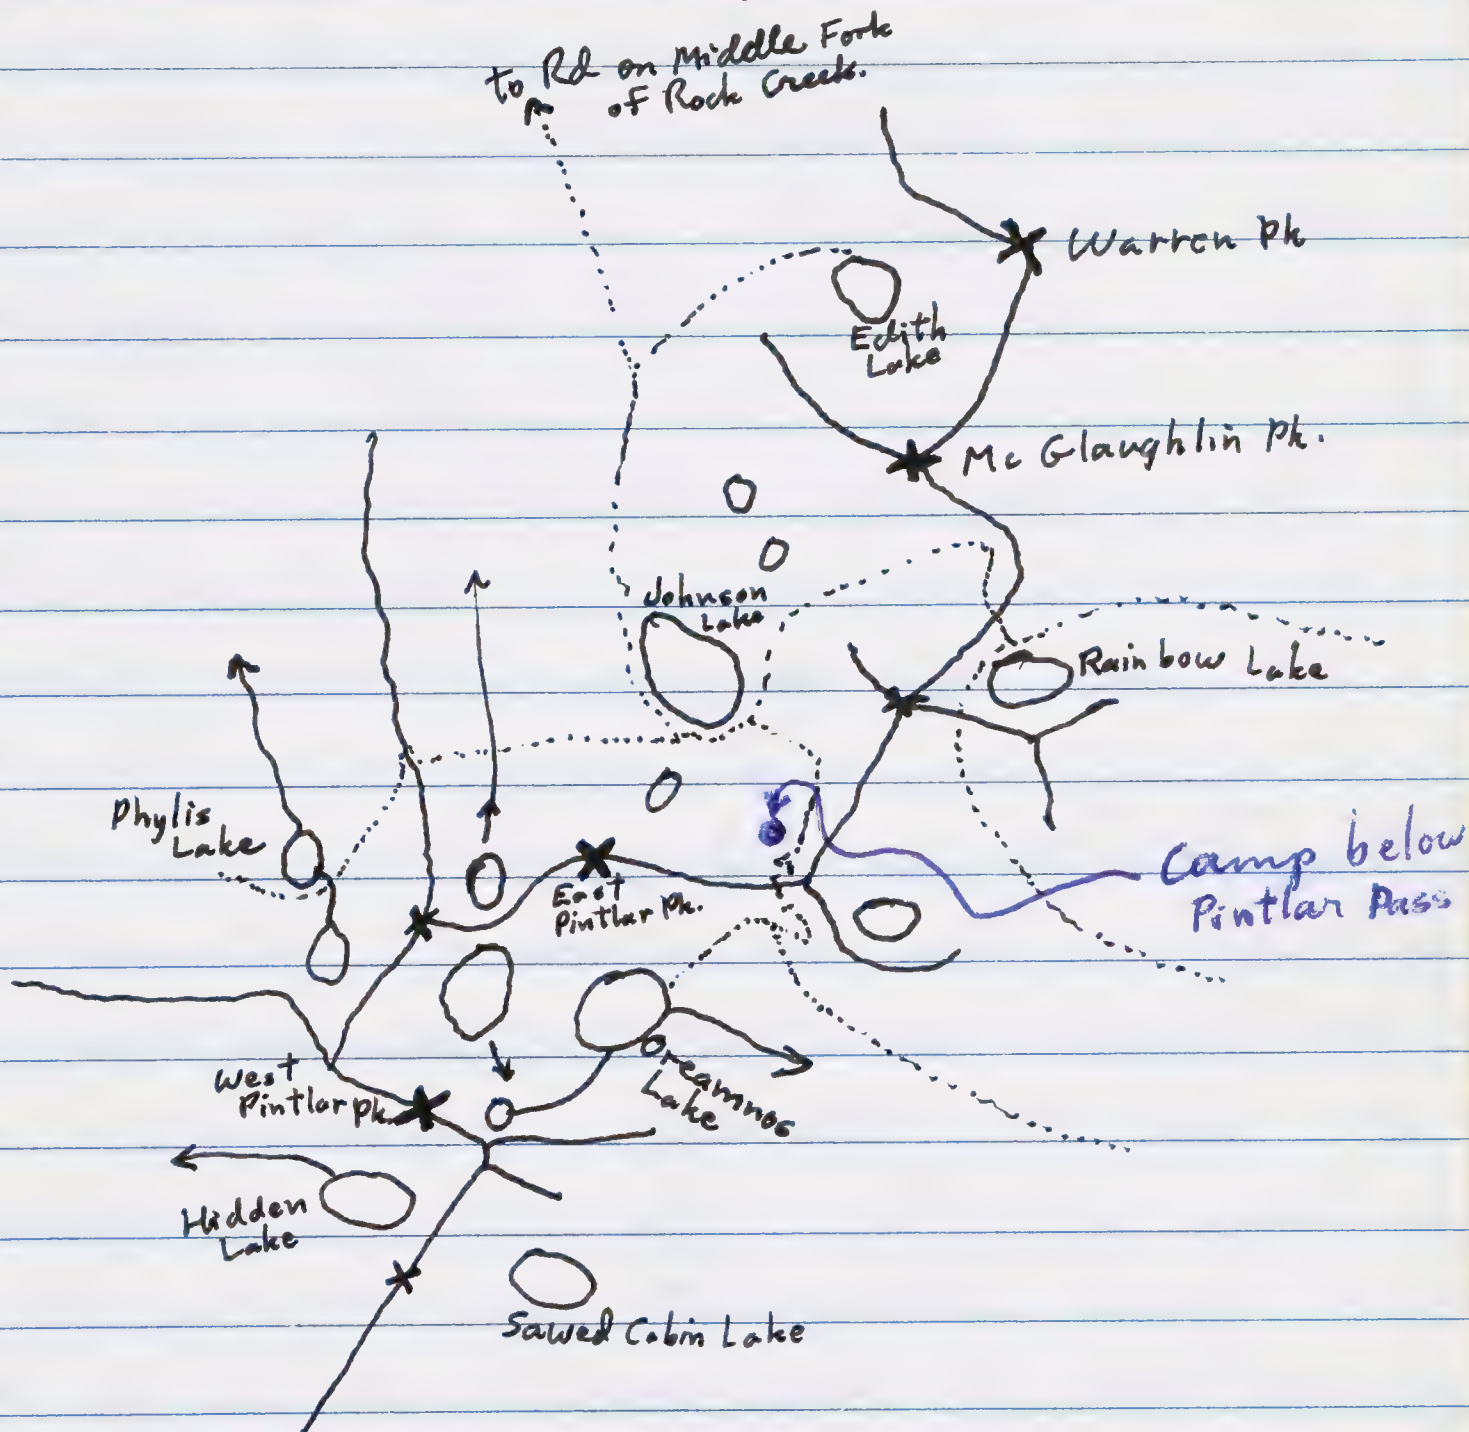 to Rd on Middle Fork
of Rock Creek.
Warren Pk
Edith
Lake
Mc Glaughlin Pk.
Johnson
Lake
Rainbow Lake
Phylis
Lake
Camp below
Pintlar Pass
East
Pintlar Pk.
Oreamnos
Lake
West
Pintlar Pk.
Hidden
Lake
Sawed Cabin Lake